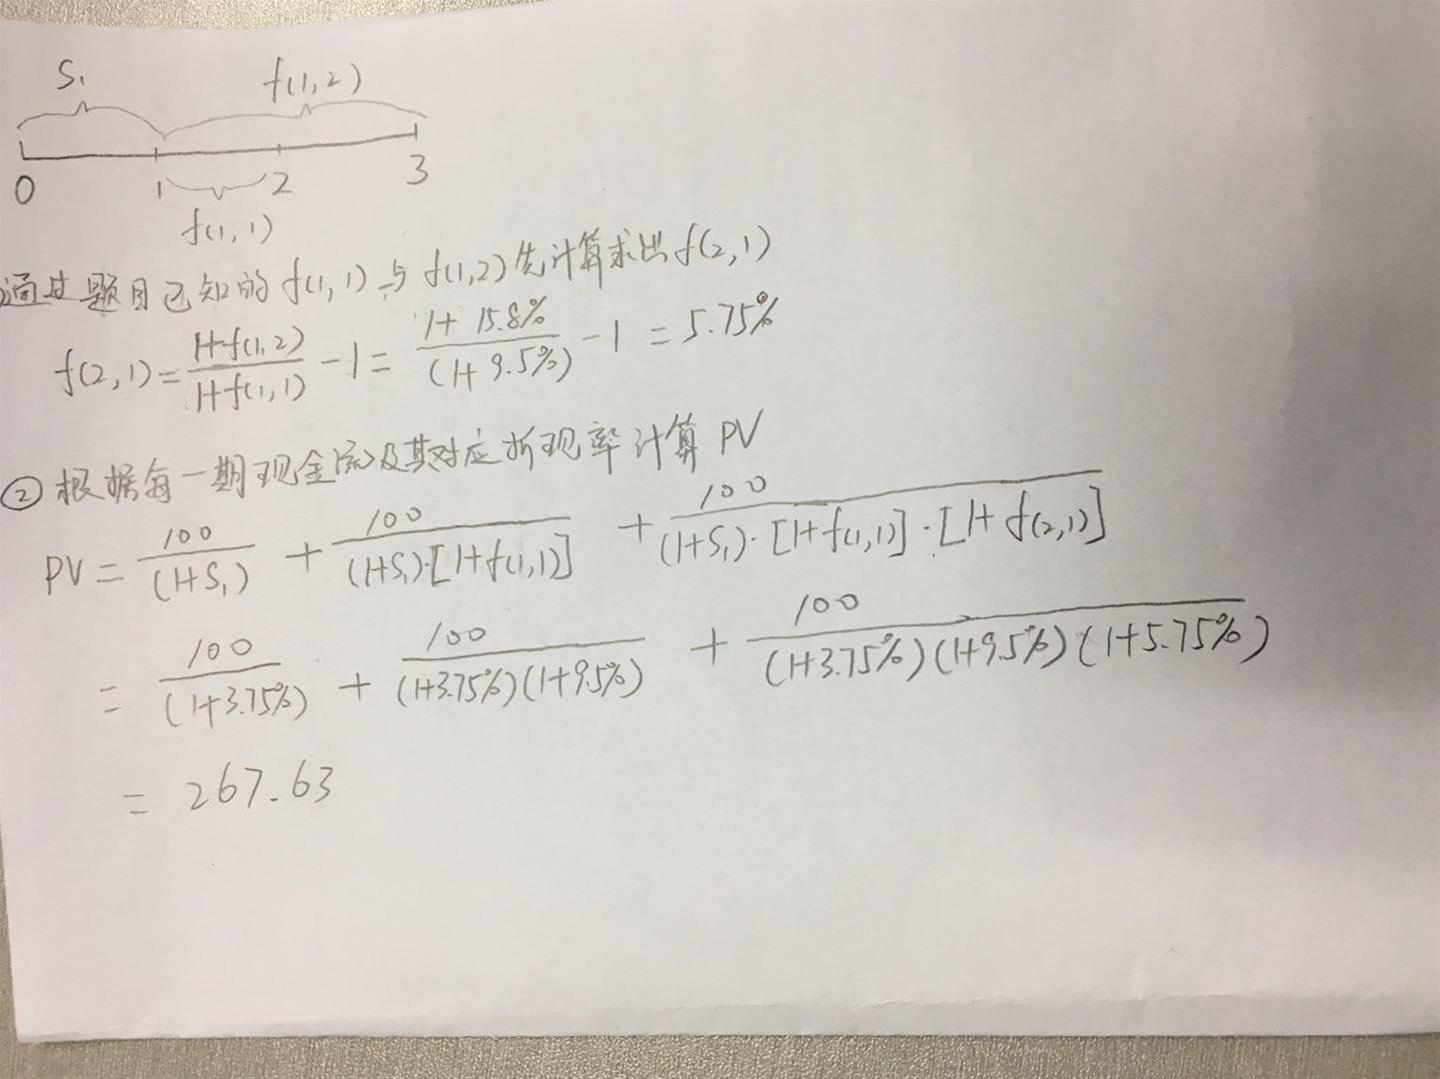 S₁ f(1,2)
0 1 2 3
f(1,1)
通过题目已知的f(1,1)与f(1,2)先计算求出f(2,1)
f(2,1)=\frac{1+f(1,2)}{1+f(1,1)}-1=\frac{1+15.8%}{(1+9.5%)}-1=5.75%
②根据每一期现金流及其对应折现率计算PV
PV=\frac{100}{(1+S₁)}+\frac{100}{(1+S₁)·[1+f(1,1)]}+\frac{100}{(1+S₁)·[1+f(1,1)]·[1+f(2,1)]}
=\frac{100}{(1+3.75%)}+\frac{100}{(1+3.75%)(1+9.5%)}+\frac{100}{(1+3.75%)(1+9.5%)(1+5.75%)}
=267.63